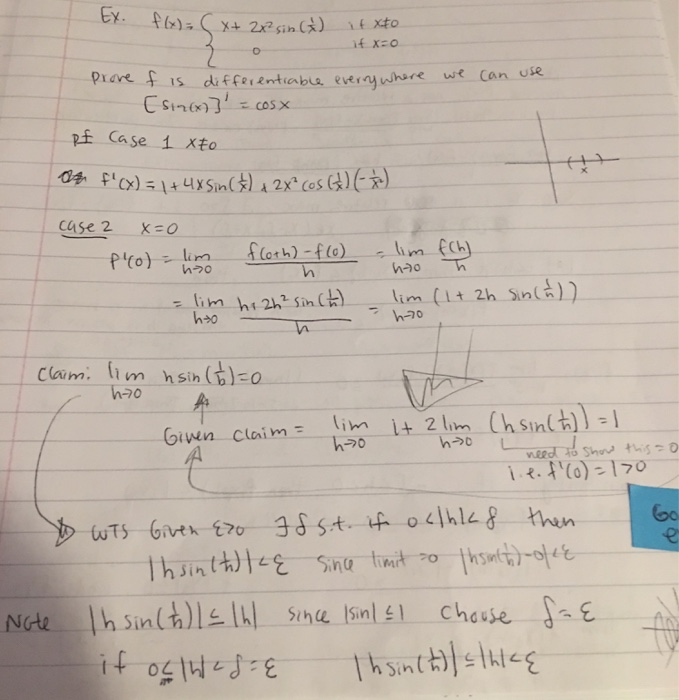 Ex. f(x) = { x + 2x² sin(1/x) if x≠0
0 if x=0
Prove f is differentiable everywhere we can use
[sin(x)]' = cosx
pf Case 1 x≠0
f'(x) = 1 + 4x sin(1/x) + 2x² cos(1/x)(-1/x²)
1/x
case 2 x=0
f'(0) = lim h→0 f(0+h) - f(0) / h = lim h→0 f(h)/h
= lim h→0 h + 2h² sin(1/h) / h = lim h→0 (1 + 2h sin(1/h))
Claim: lim h→0 h sin(1/h) = 0
Given claim = lim h→0 1 + 2 lim h→0 (h sin(1/h)) = 1
need to show this = 0
i.e. f'(0) = 1 > 0
WTS Given ε>0 ∃δ s.t. if 0<|h|<δ then
|h sin(1/h)| < ε since limit =0 |h sin(1/h) - 0| < ε
Go
e
Note |h sin(1/h)| ≤ |h| since |sin| ≤ 1 Choose δ = ε
if 0 ≤ |h| < δ = ε |h sin(1/h)| ≤ |h| < ε